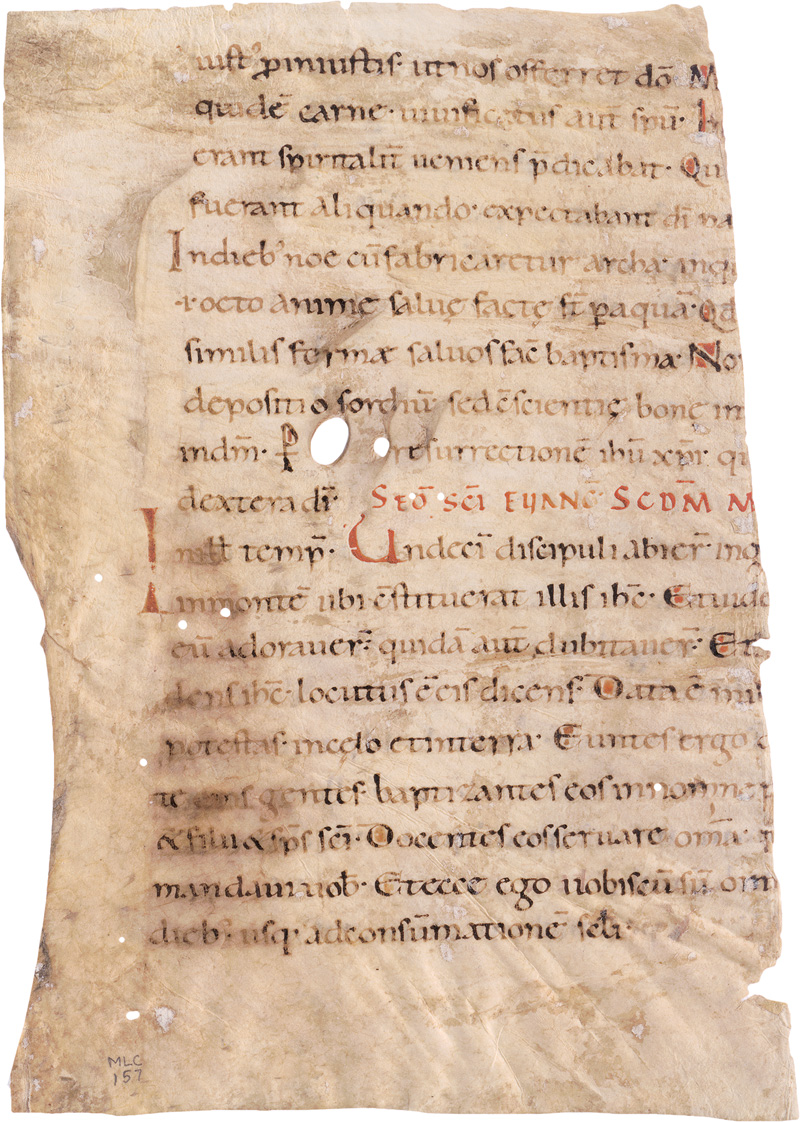 iust᾽ ꝑ iniustis· ut nos offerret dō M
quidē carne· uiuificatus aut̄ spū· I
erant spiritalit̄ ueniens p̄dicabat· Qui
fuerant aliquando· expectabant dī pa
In dieb᾽ noe cū fabricaretur archa· in q
·i· octo animę saluę factę st̄ ꝑ aquā· Qd
similis formæ saluos fac̄ baptisma· No
depositio sordiū sed c̄scientię bonę in
in dm̄· ꝑ resurrectionē ihū xp̄i· qui
dextera dī· SEQ̄ SCĪ EUANḠ SCDM̄ M
In ill temp̄· Undecī discipuli abier̄ in g
in montē ubi c̄stituerat illis ihc̄· Et uide
eū adorauer̄· quidā aut̄ dubitauer̄· Et
dens ihc̄· locutus ē eis dicens· Data ē mi
potestas· in cęlo et in terra· Euntes ergo
te om̄s gentes· baptizantes eos in nomine p
& filii & sp̄s scī· Docentes eos seruare om̄a· q
mandaui uob· Et ecce ego uobiscū sū om
dieb᾽ usq· ad consūmationē scli·
MLC
157